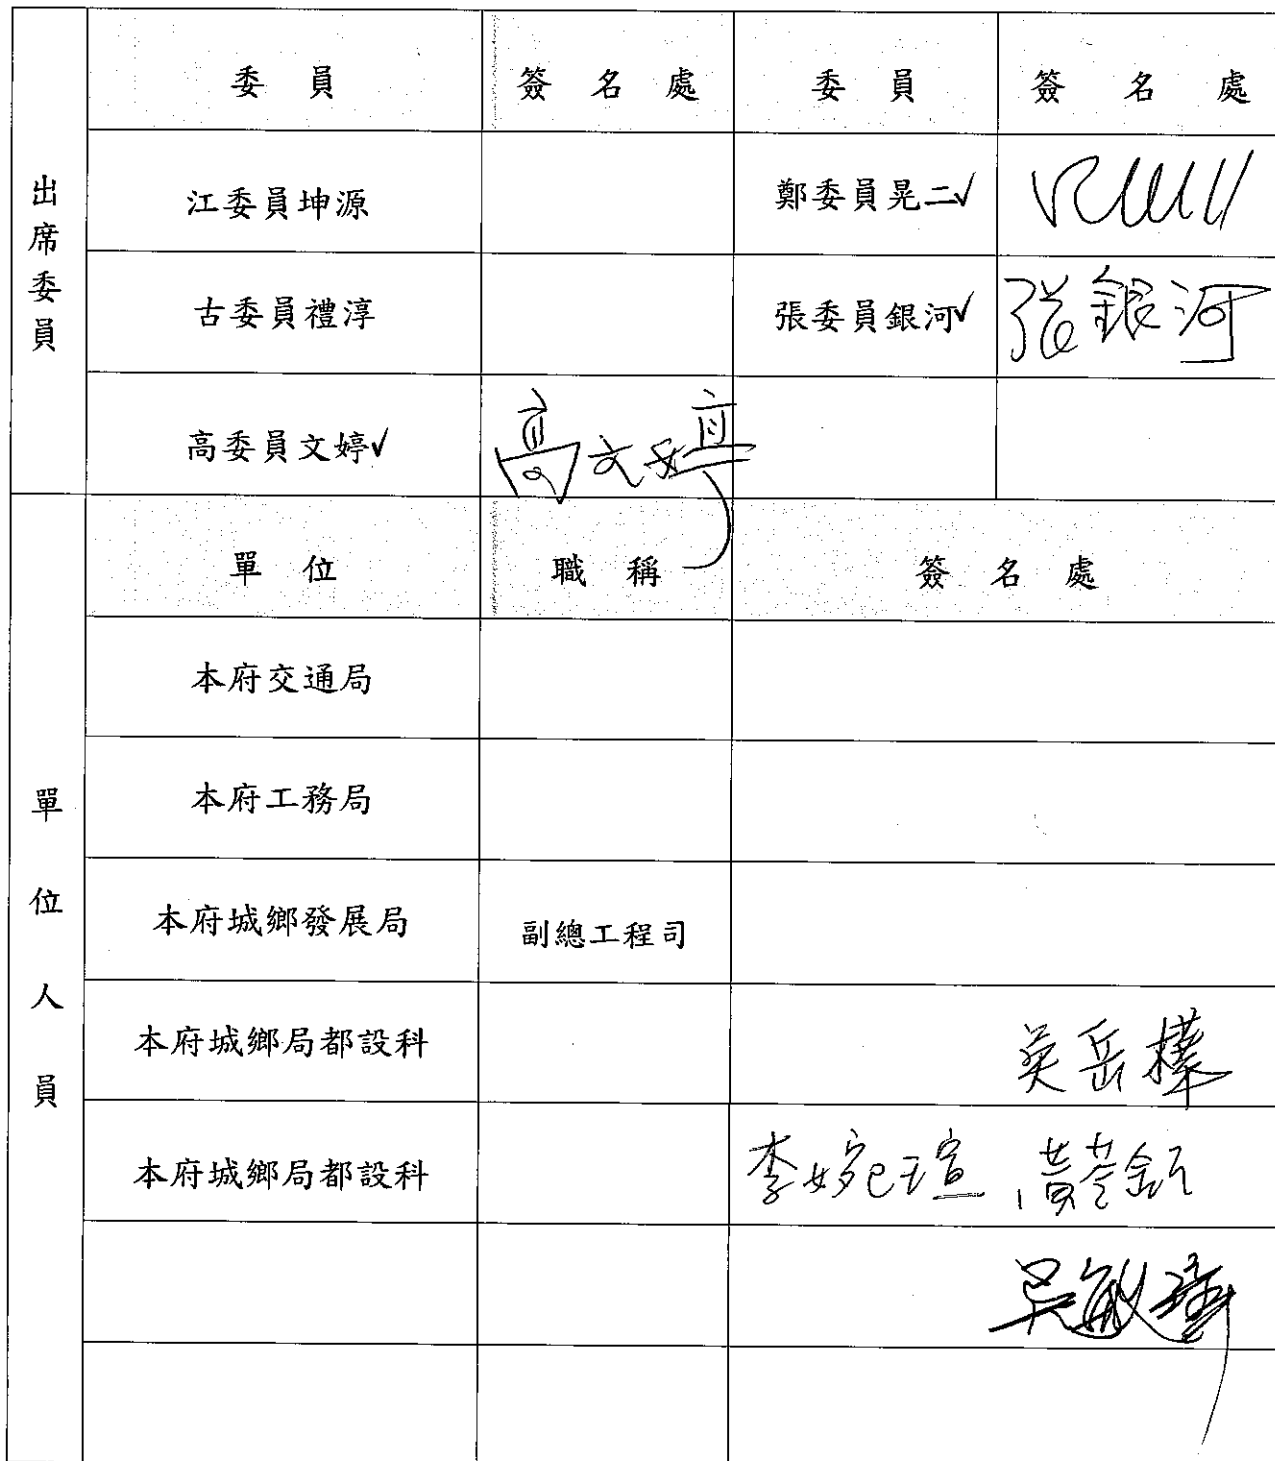 出席委員
委員 簽名處 委員 簽名處
江委員坤源 鄭委員晃二✓
古委員禮淳 張委員銀河✓ 張銀河
高委員文婷✓ 高文婷
單位人員
單位 職稱 簽名處
本府交通局
本府工務局
本府城鄉發展局 副總工程司
本府城鄉局都設科 吳岳樺
本府城鄉局都設科 李婉瑄 黃苓
吳敏